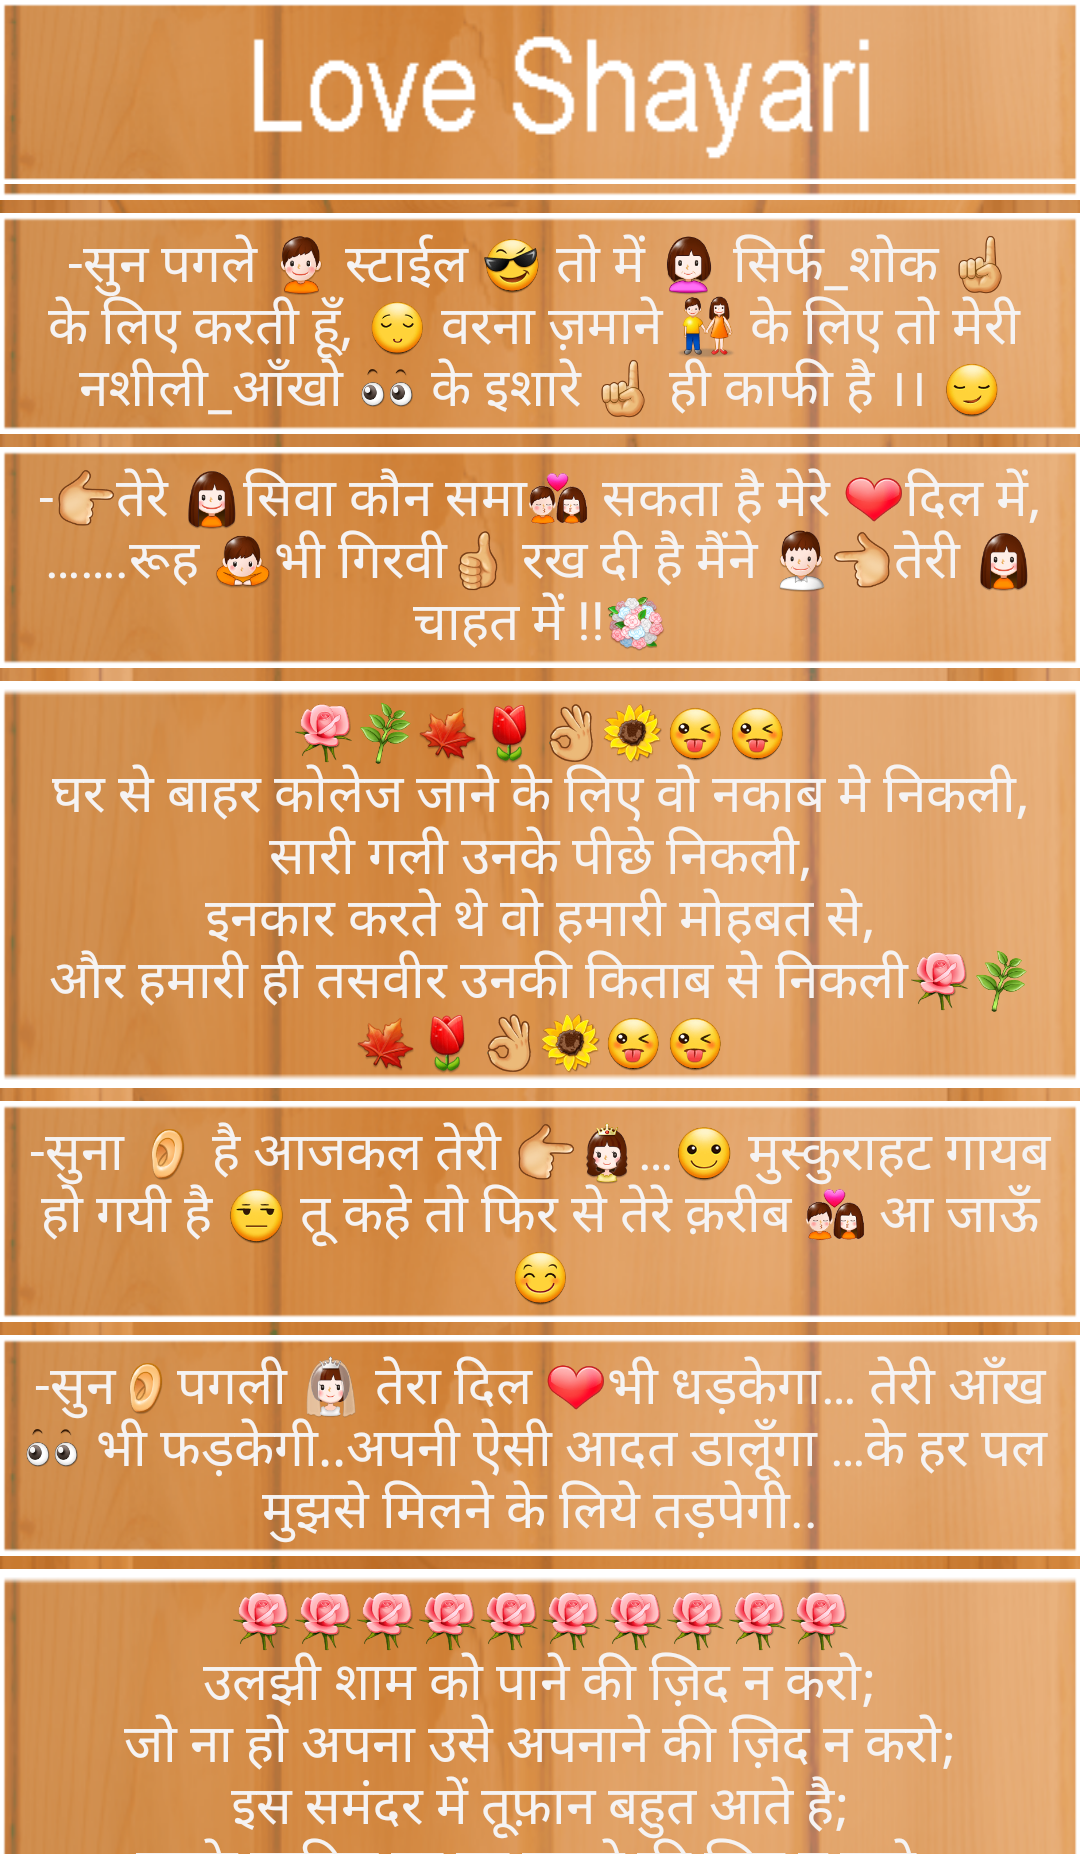 Love Shayari
-सुन पगले 👦 स्टाईल 😎 तो में 👩 सिर्फ_शोक ☝
के लिए करती हूँ, 😌 वरना ज़माने 👫 के लिए तो मेरी
नशीली_आँखो 👀 के इशारे ☝ ही काफी है ।। 😏
-👉तेरे 👧सिवा कौन समा💏 सकता है मेरे ❤दिल में,
.......रूह 🙇भी गिरवी👍 रख दी है मैंने 👨👈तेरी 👧
चाहत में !!💐
🌹🌿🍁🌷👌🌻😜😜
घर से बाहर कोलेज जाने के लिए वो नकाब मे निकली,
सारी गली उनके पीछे निकली,
इनकार करते थे वो हमारी मोहबत से,
और हमारी ही तसवीर उनकी किताब से निकली🌹🌿
🍁🌷👌🌻😜😜
-सुना 👂 है आजकल तेरी 👉👸...🙂 मुस्कुराहट गायब
हो गयी है 😒 तू कहे तो फिर से तेरे क़रीब 💏 आ जाऊँ
😊
-सुन👂पगली 👰 तेरा दिल ❤भी धड़केगा... तेरी आँख
👀 भी फड़केगी..अपनी ऐसी आदत डालूँगा ...के हर पल
मुझसे मिलने के लिये तड़पेगी..
🌹🌹🌹🌹🌹🌹🌹🌹🌹🌹
उलझी शाम को पाने की ज़िद न करो;
जो ना हो अपना उसे अपनाने की ज़िद न करो;
इस समंदर में तूफ़ान बहुत आते है;